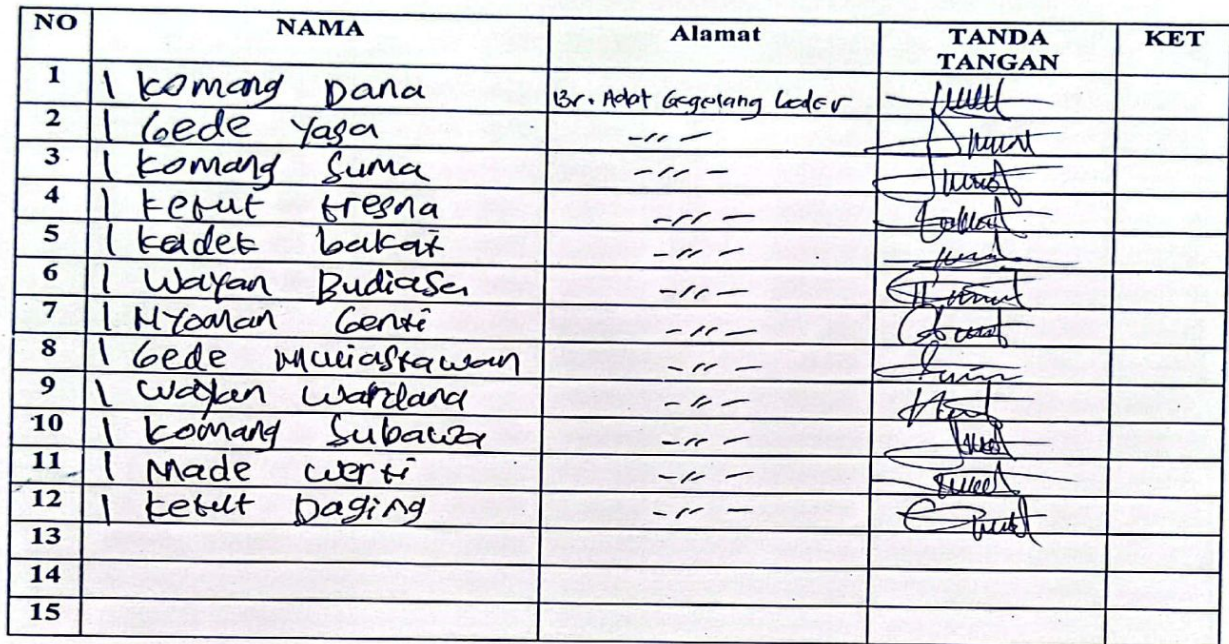 NO NAMA Alamat TANDA TANGAN KET
1 I komang Dana Br. Adat Gegelang
2 I Gede Yasa -〃-
3 I komang Suma -〃-
4 I ketut kresna -〃-
5 I kadek bakat -〃-
6 I Wayan Budiasa -〃-
7 I Nyoman Genti -〃-
8 I Gede Muliastawan -〃-
9 I Wayan Wardana -〃-
10 I komang Subawa -〃-
11 I Made Werti -〃-
12 I ketut Daging -〃-
13
14
15